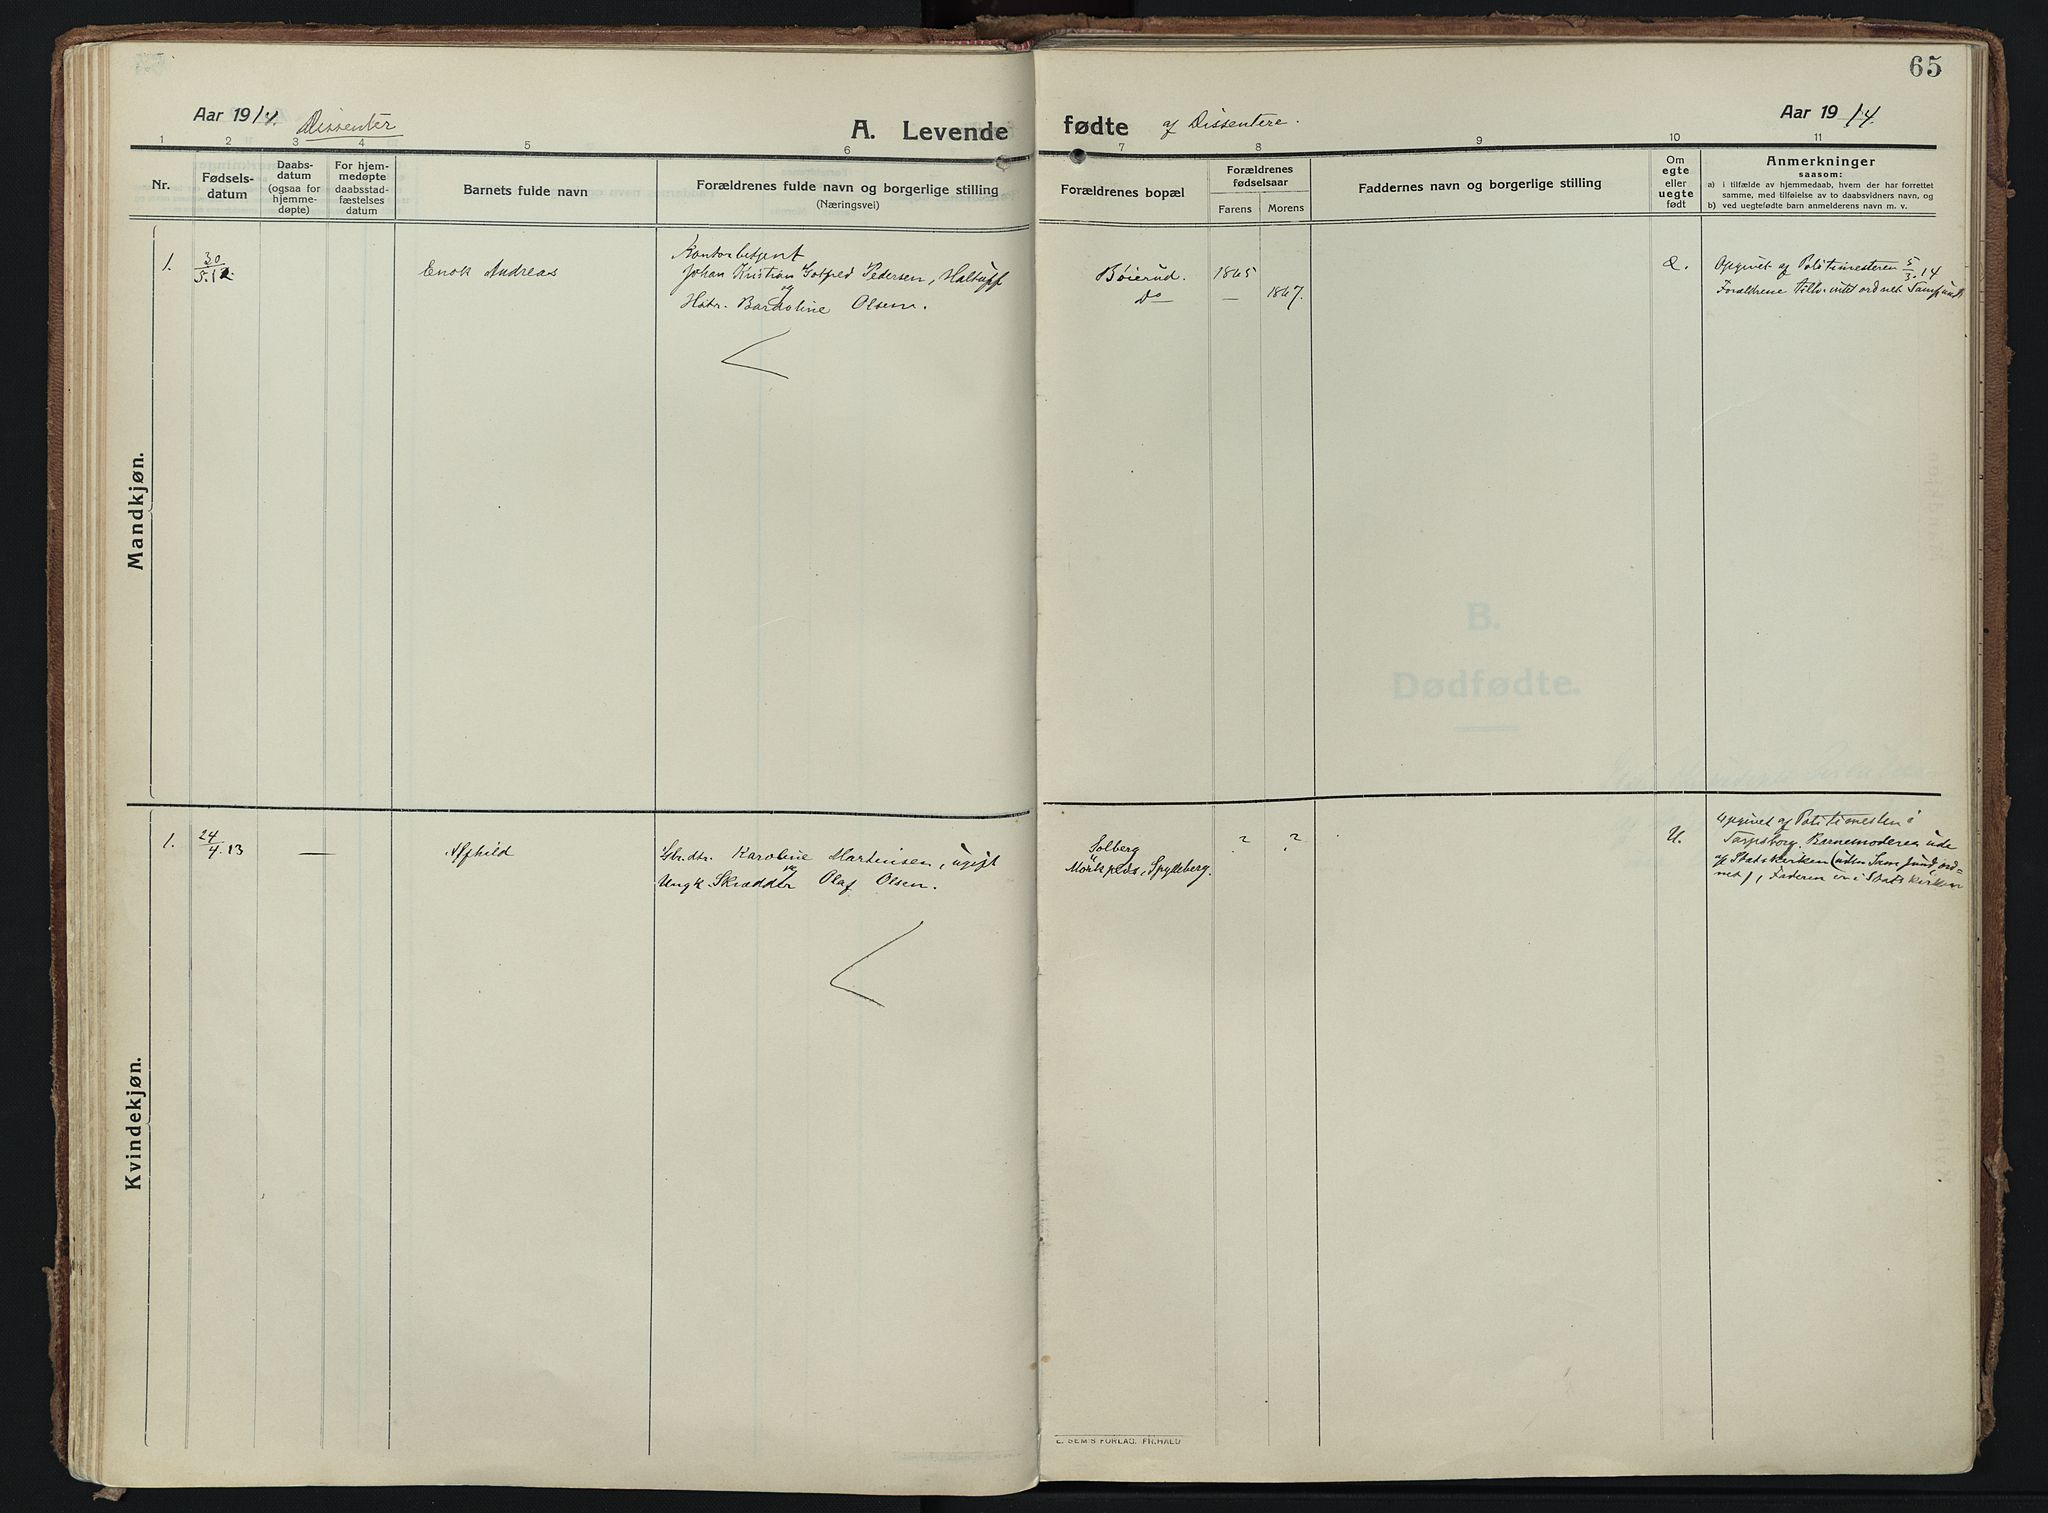 65
Aar 1914. Dissenter
A. Levende fødte af Dissentere.
Aar 1914
1 2 3 4 5 6 7 8 9 10 11
Nr.
Fødsels-
datum
Daabs-
datum
(ogsaa for
hjemme-
døpte)
For hjem-
medøpte
daabsstad-
fæstelses
datum
Barnets fulde navn
Forældrenes fulde navn og borgerlige stilling
(Næringsvei)
Forældrenes bopæl
Forældrenes
fødselsaar
Farens Morens
Faddernes navn og borgerlige stilling
Om
egte
eller
uegte
født
Anmerkninger
saasom:
a) i tilfælde av hjemmedaab, hvem der har forrettet
samme, med tilføielse av to daabsvidners navn, og
b) ved uegtefødte barn anmelderens navn m. v.
Mandkjøn.
1.
30/5.12.
Enok Andreas
Kontorbetjent
Johan Kristian Gotfred Pedersen,
og
Hstr. Olsen.
Bøierud.
Do
1865
—
1867.
Opgivet af Politimesteren 5/3.14
Forældrene
B.
Dødfødte.
Kvindekjøn.
1.
24/4.13
—
Alfhild
Karoline Martinsen, ugift
og
Ungk. Skrædder Olaf Olsen.
Solberg
Spydeberg.
?
?
U.
Opgivet af Politimesten i
Sarpsborg. Barnemoderen ude
af Statskirken (uden Samfund, ord-
net), Faderen er i Statskirken
E. SEM'S FORLAG, FR.HALD